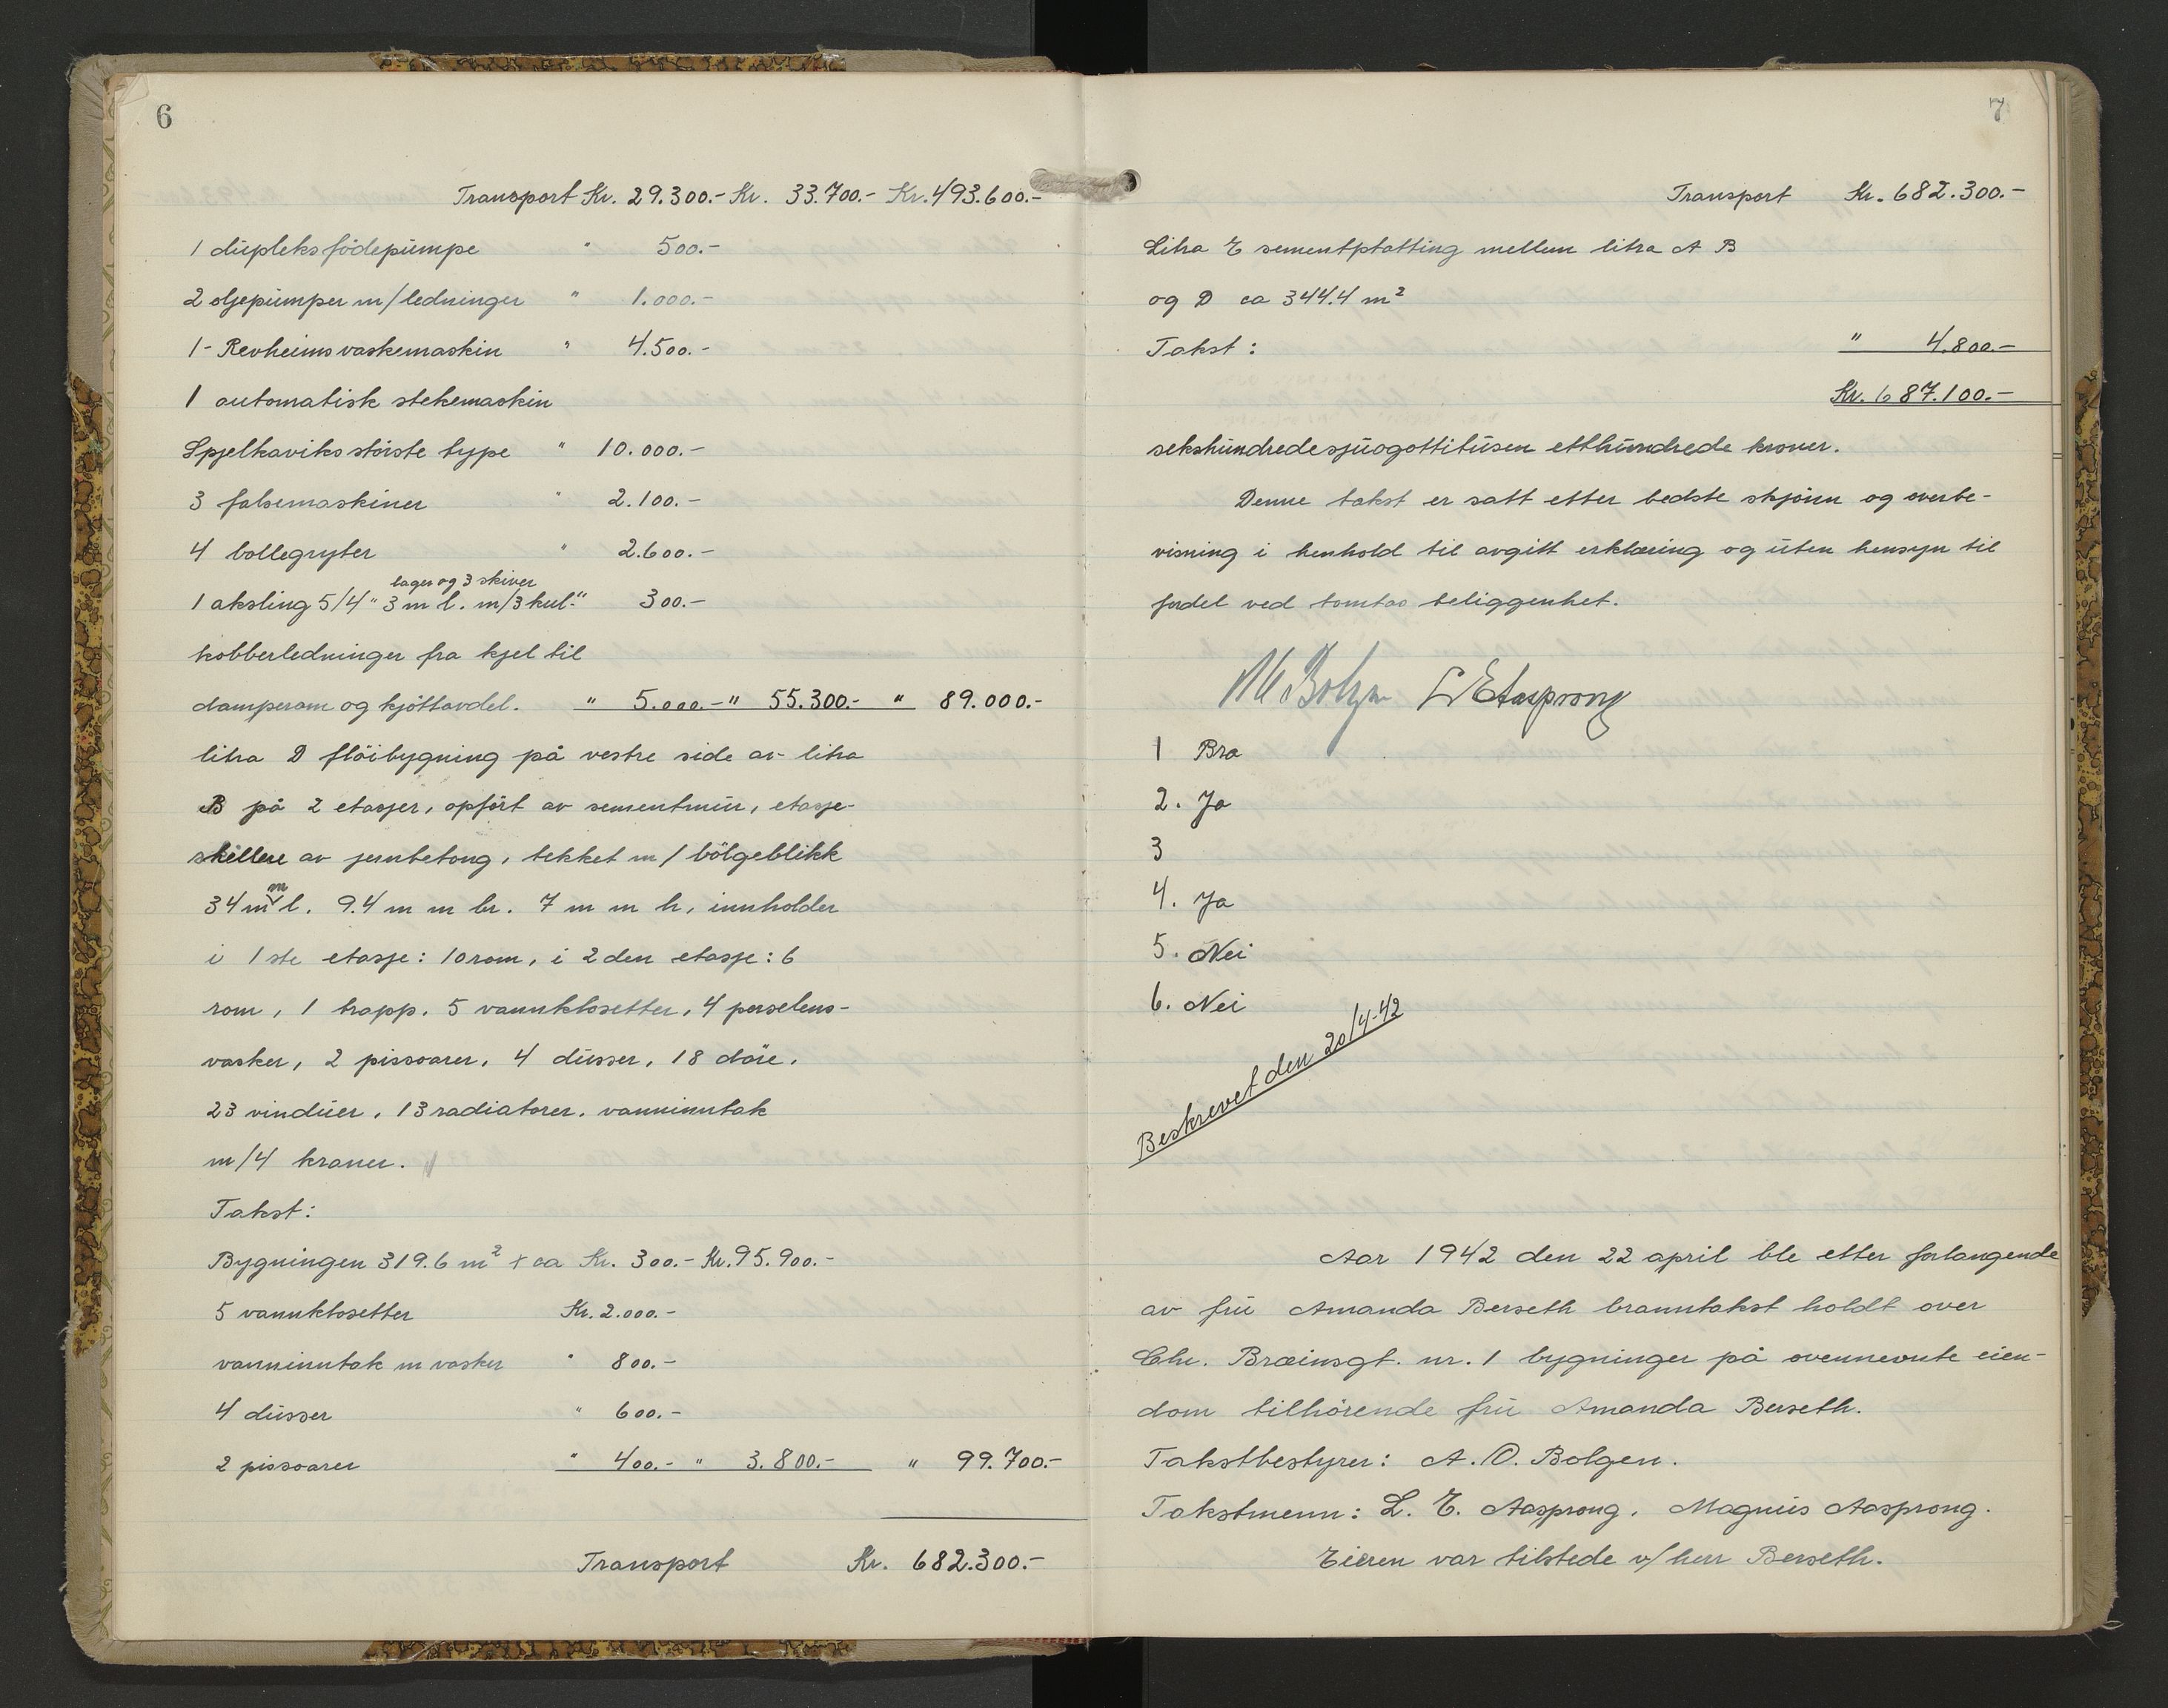 6
Transport Kr. 29.300.- Kr. 33.700.- Kr. 493.600.-
1 dupleks födepumpe " 500.-
2 oljepumper m/ledninger " 1.000.-
1 - Revheims vaskemaskin " 4.500.-
1 automatisk stekemaskin
Spjelkaviks störste type " 10.000.-
3 falsemaskiner " 2.100.-
4 bollegryter " 2.600.-
lager og 3 skiver
1 aksling 5/4" 3 m l. m/3 kul." 300.-
kobberledninger fra kjel til
damperom og kjöttavdel. " 5.000.- " 55.300.- " 89.000.-
litra D flöibygning på vestre side av litra
B på 2 etasjer, opfört av sementmur, etasje-
skillere av jernbetong, tekket m/ bölgeblikk
34 m m l. 9.4 m m br. 7 m m h, innholder
i 1ste etasje: 10 rom, i 2den etasje: 6
rom, 1 trapp. 5 vannklosetter, 4 porselens-
vasker, 2 pissoarer, 4 dusser, 18 döre,
23 vinduer, 13 radiatorer, vanninntak
m/4 kraner.
Takst:
Bygningen 319.6 m² + ca Kr. 300.- Kr. 95.900.-
5 vannklosetter Kr. 2.000.-
vanninntak m vasker " 800.-
4 dusser " 600.-
2 pissoarer " 400.- " 3.800.- " 99.700.-
Transport Kr. 682.300.-
7
Transport Kr. 682.300.-
Litra E sementplatting mellem litra A B
og D ca 344.4 m²
Takst: " 4.800.-
Kr. 687.100.-
sekshundredesjuogottitusen etthundrede kroner.
Denne takst er satt etter bedste skjönn og overbe-
visning i henhold til avgitt erklæring og uten hensyn til
fordel ved tomtas beliggenhet.
L E Aasprong
1 Bra
2. Ja
3
4. Ja
5. Nei
6. Nei
Beskrevet den 20/4-42
Aar 1942 den 22 april ble etter forlangende
av fru Amanda Berseth branntakst holdt over
Chr. Bræinsgt. nr. 1 bygninger på ovennevnte eien-
dom tilhörende fru Amanda Berseth.
Takstbestyrer: A. O. Bolgen.
Takstmenn: L. E. Aasprong, Magnus Aasprong.
Eieren var tilstede v/ herr Berseth.